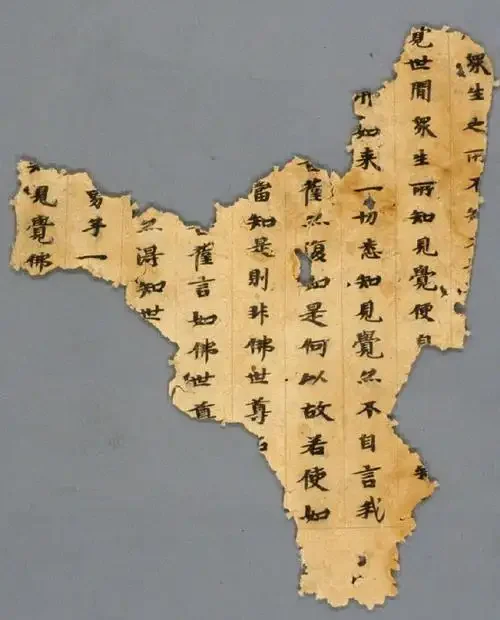 衆生之所不知
見世間衆生所知見覺便自
如来一切悉知見覺亦不自言我
薩亦復如是何以故若使如
當知是則非佛世尊
薩言如佛世尊
亦得知世
男子一
見覺佛